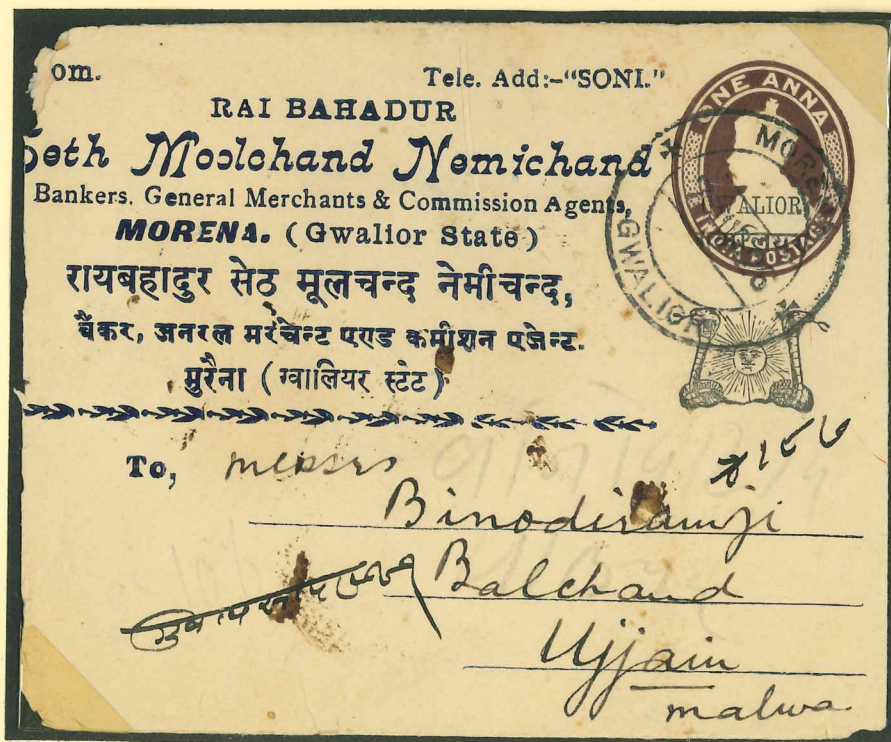 om.
Tele. Add:-"SONI."
RAI BAHADUR
Seth Moolchand Nemichand
Bankers. General Merchants & Commission Agents,
MORENA. (Gwalior State)
रायबहादुर सेठ मूलचन्द नेमीचन्द,
बैंकर, जनरल मरचेन्ट एण्ड कमीशन एजेन्ट.
मुरैना (ग्वालियर स्टेट)
ONE ANNA
GWALIOR
INDIA POSTAGE
MORENA
GWALIOR
To, messrs
Binodiramji
Balchand
Ujjain
malwa